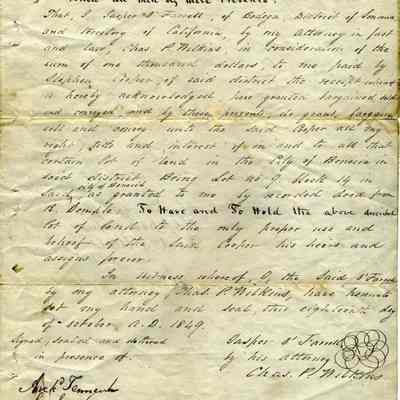 Know all men by these Presents:
That, I, Jasper O'Farrell, of Bodega, District of Sonoma
and territory of California, by my attorney in fact
and law, Chas P. Wilkins, in consideration of the
sum of one thousand dollars, to me paid by
Stephen Cooper, of said district the receipt whereof
is hereby acknowledged, have granted bargained sold
and conveyed, and by these presents, do grant, bargain
sell and convey unto the said Cooper all my
right, title and interest of in and to all that
certain lot of land in the City of Benicia in
said district, Being Lot No 9, block 14 in
said city of Benicia as granted to me by recorded deed from
R. Semple. To Have and To Hold the above described
lot of land to the only proper use and
behoof of the said Cooper his heirs and
assigns forever.
In witness whereof, I, the said O'Farrell
by my attorney, Chas. P. Wilkins, have hereunto
set my hand and seal, this eighteenth day
of October, A.D. 1849.
Signed, sealed and delivered
in presence of.
Jasper O'Farrell
by his attorney
Chas. P. Wilkins
Arch. Tennent